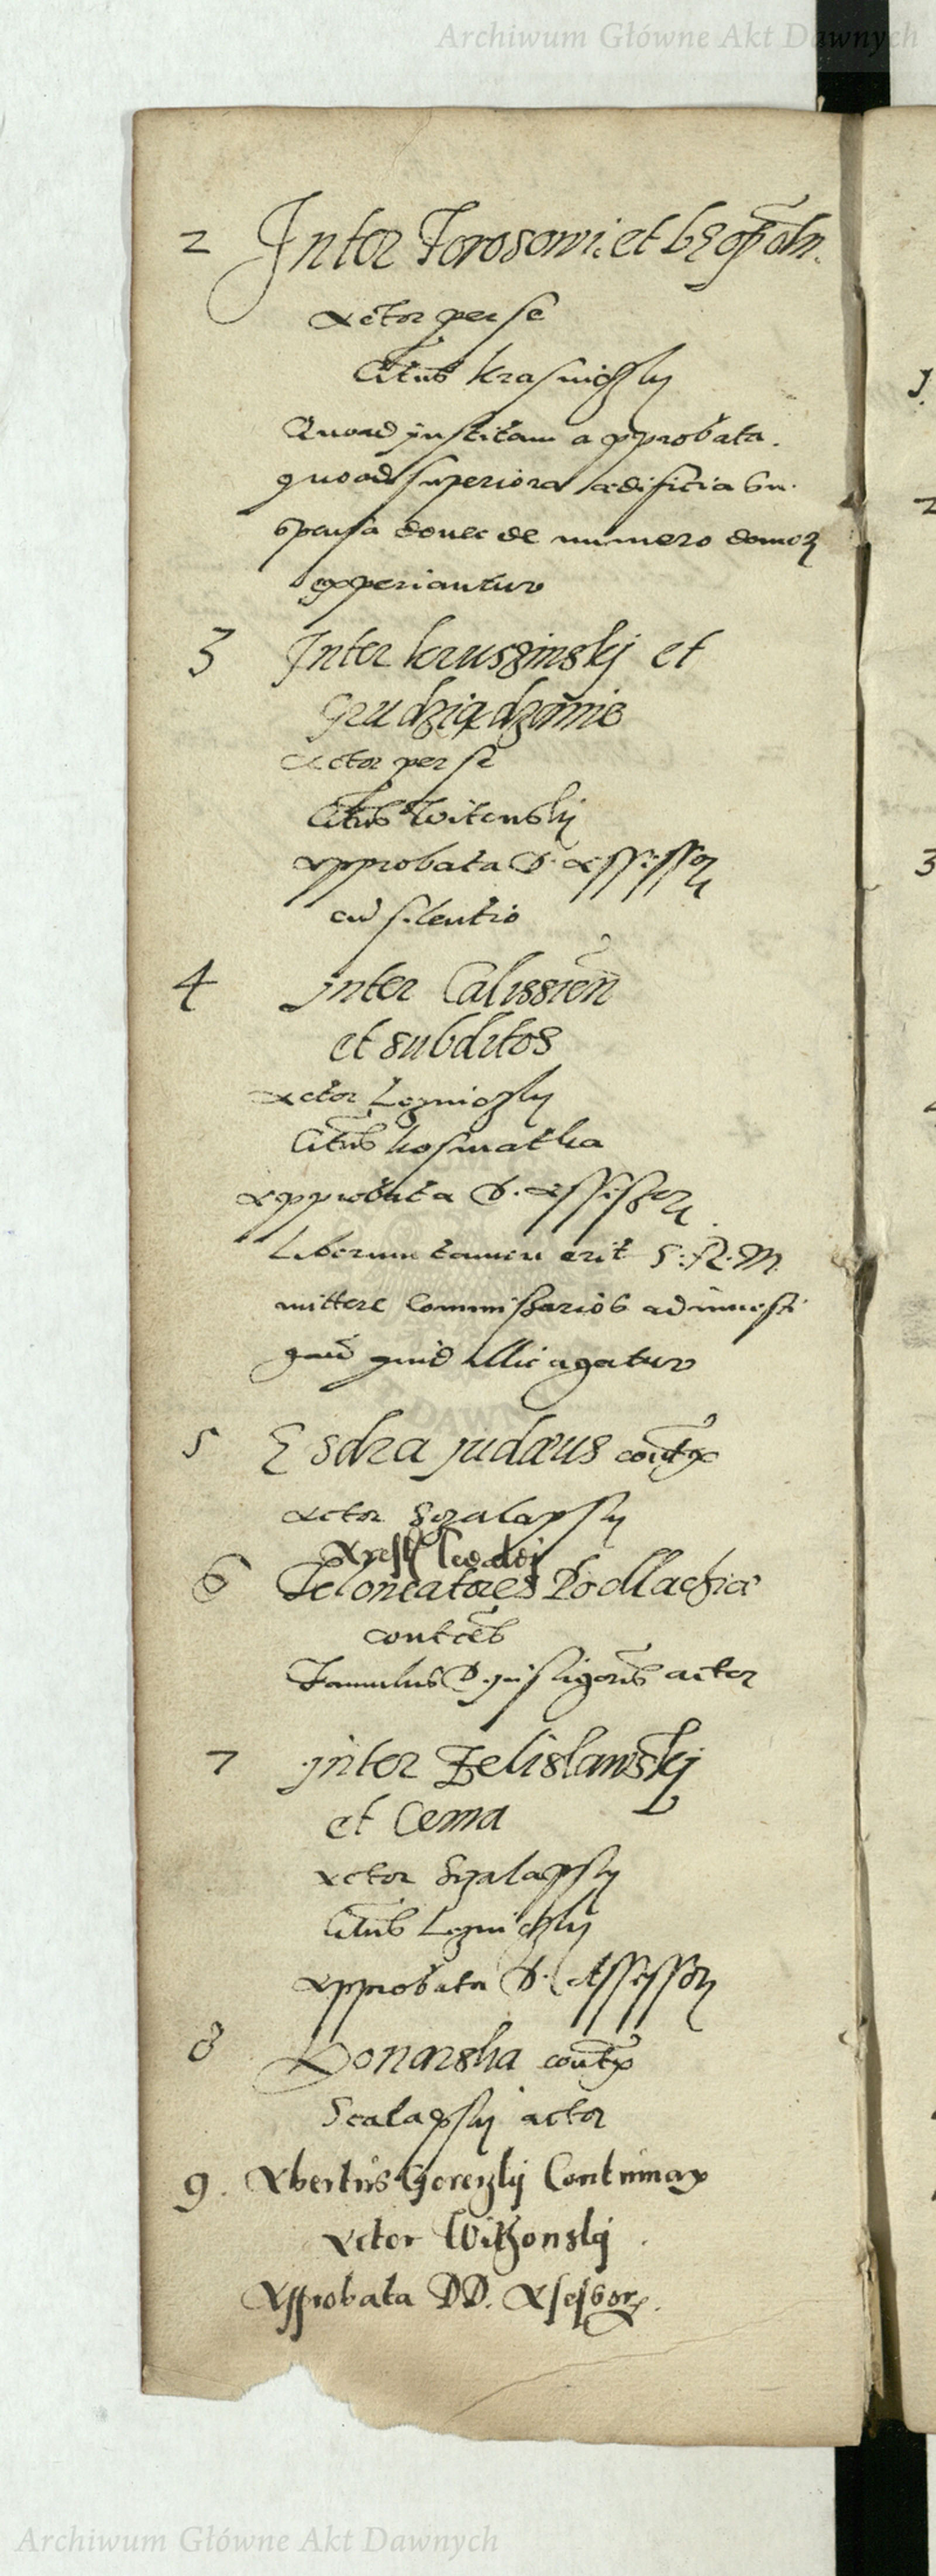 Archiwum Główne Akt Dawnych
2 Inter Torosowi. et
Actor per se
Citus Krasniczky
Quoad justitam approbata.
quoad superiora ædificia su.
spensa donec de numero domor
experiantur
3 Inter Kruszinskj et
Grudziądzanis
Actor per se
Citus Witonskij
Approbata D. Assessor
cu silentio
4 Inter Calissien
et subditos
Actor Lezniczky
Citus Kosmatka
Approbata D. Assessor
Liberum tamen erit S. R. M.
mittere Commissarios ad inuesti
gad quid illic agatur
5 Esdra judæus contx
Actor Szalapsky
6 Teloneatores Podlachiæ
contces
Famulus D. jnstigoris actor
7 jnter Zelislawskj
et Cema
Actor Szalapsky
Citus Lezniczky
Approbata D. Assessor
8 Donarska contx
Scalapsky actor
9. Albertus Gorezkij Contumax
Actor Witkonskj
Approbata DD. Assessor.
1.
2
3
DAWN
Archiwum Główne Akt Dawnych